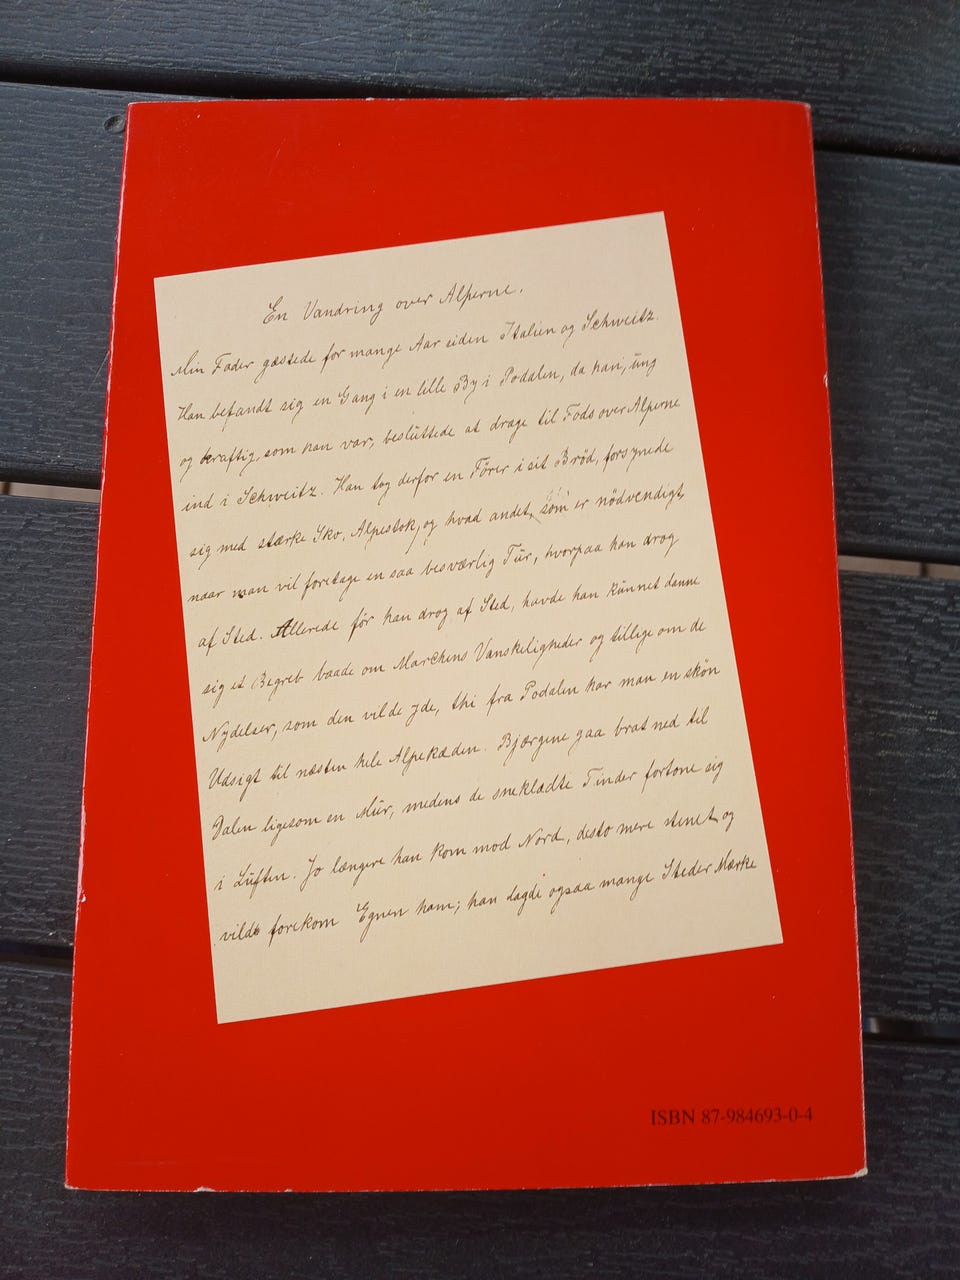 En Vandring over Alperne.
Min Fader gæstede for mange Aar siden Italien og Schweitz.
Han befandt sig en Gang i en lille By i Podalen, da han, ung
og kraftig, som han var, besluttede at drage til Fods over Alperne
ind i Schweitz. Han tog derfor en Förer i sit Bröd, forsynede
sig med stærke Sko, Alpestok, og hvad andet, som er nödvendigt,
naar man vil foretage en saa besværlig Tur, hvorpaa han drog
af Sted. Allerede för han drog af Sted, havde han kunnet danne
sig et Begreb baade om Marchens Vanskeligheder og tillige om de
Nydelser, som den vilde yde, thi fra Podalen har man en skön
Udsigt til næsten hele Alpekæden. Bjærgene gaa brat ned til
Dalen ligesom en Mur, medens de sneklædte Tinder fortone sig
i Luften. Jo længere han kom mod Nord, desto mere stenet og
vildt forekom Egnen ham; han lagde ogsaa mange Steder Mærke
ISBN 87-984693-0-4